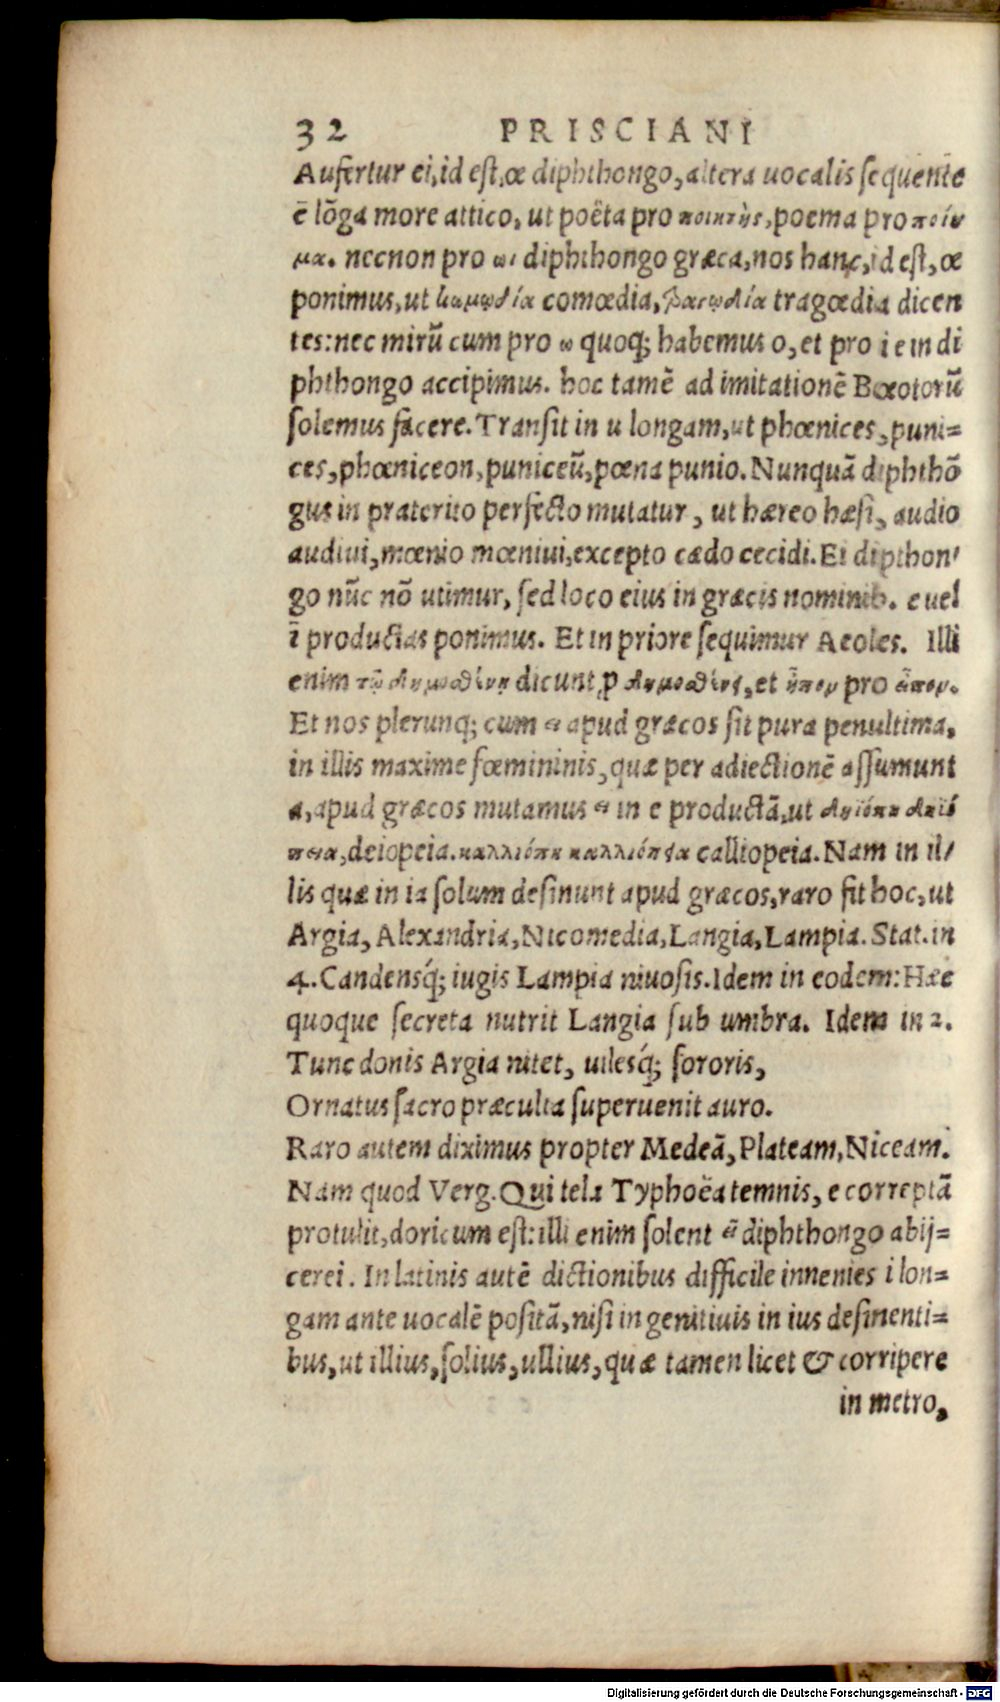 32 PRISCIANI
Aufertur ei, id est, œ diphthongo, altera uocalis sequente
ē lōga more attico, ut poëta pro ποιητὴς, poema pro ποίη
μα. necnon pro ωι diphthongo græca, nos hanc, id est, œ
ponimus, ut κωμῳδία comœdia, τραγῳδία tragœdia dicen
tes: nec mirū cum pro ω quoq; habemus o, et pro i e in di
phthongo accipimus. hoc tamē ad imitationē Bœotorū
solemus facere. Transit in u longam, ut phœnices, puni=
ces, phœniceon, puniceū, pœna punio. Nunquā diphthō
gus in præterito perfecto mutatur, ut hæreo hæsi, audio
audiui, mœnio mœniui, excepto cædo cecidi. Ei dipthon
go nūc nō utimur, sed loco eius in græcis nominib. e uel
ī productas ponimus. Et in priore sequimur Aeoles. Illi
enim τῷ δημοσθένη dicunt ꝓ δημοσθένει, et ἦπον pro εἶπον.
Et nos plerunq; cum ει apud græcos sit pura penultima,
in illis maxime fœmininis, quæ per adiectionē assumunt
a, apud græcos mutamus ει in e productā, ut δηϊόπη δηϊό
πεια, deiopeia. καλλιόπη καλλιόπεια calliopeia. Nam in il
lis quæ in ia solum desinunt apud græcos, raro fit hoc, ut
Argia, Alexandria, Nicomedia, Langia, Lampia. Stat. in
4. Candensq́; iugis Lampia niuosis. Idem in eodem: Hæc
quoque secreta nutrit Langia sub umbra. Idem in 2.
Tunc donis Argia nitet, uilesq́; sororis,
Ornatus sacro præculta superuenit auro.
Raro autem diximus propter Medeā, Plateam, Niceam.
Nam quod Verg. Qui tela Typhoëa temnis, e correptā
protulit, doricum est: illi enim solent ει diphthongo abij=
cere i. In latinis autē dictionibus difficile innenies i lon=
gam ante uocalē positā, nisi in genitiuis in ius desinenti=
bus, ut illius, solius, ullius, quæ tamen licet & corripere
in metro,
Digitalisierung gefördert durch die Deutsche Forschungsgemeinschaft - DFG